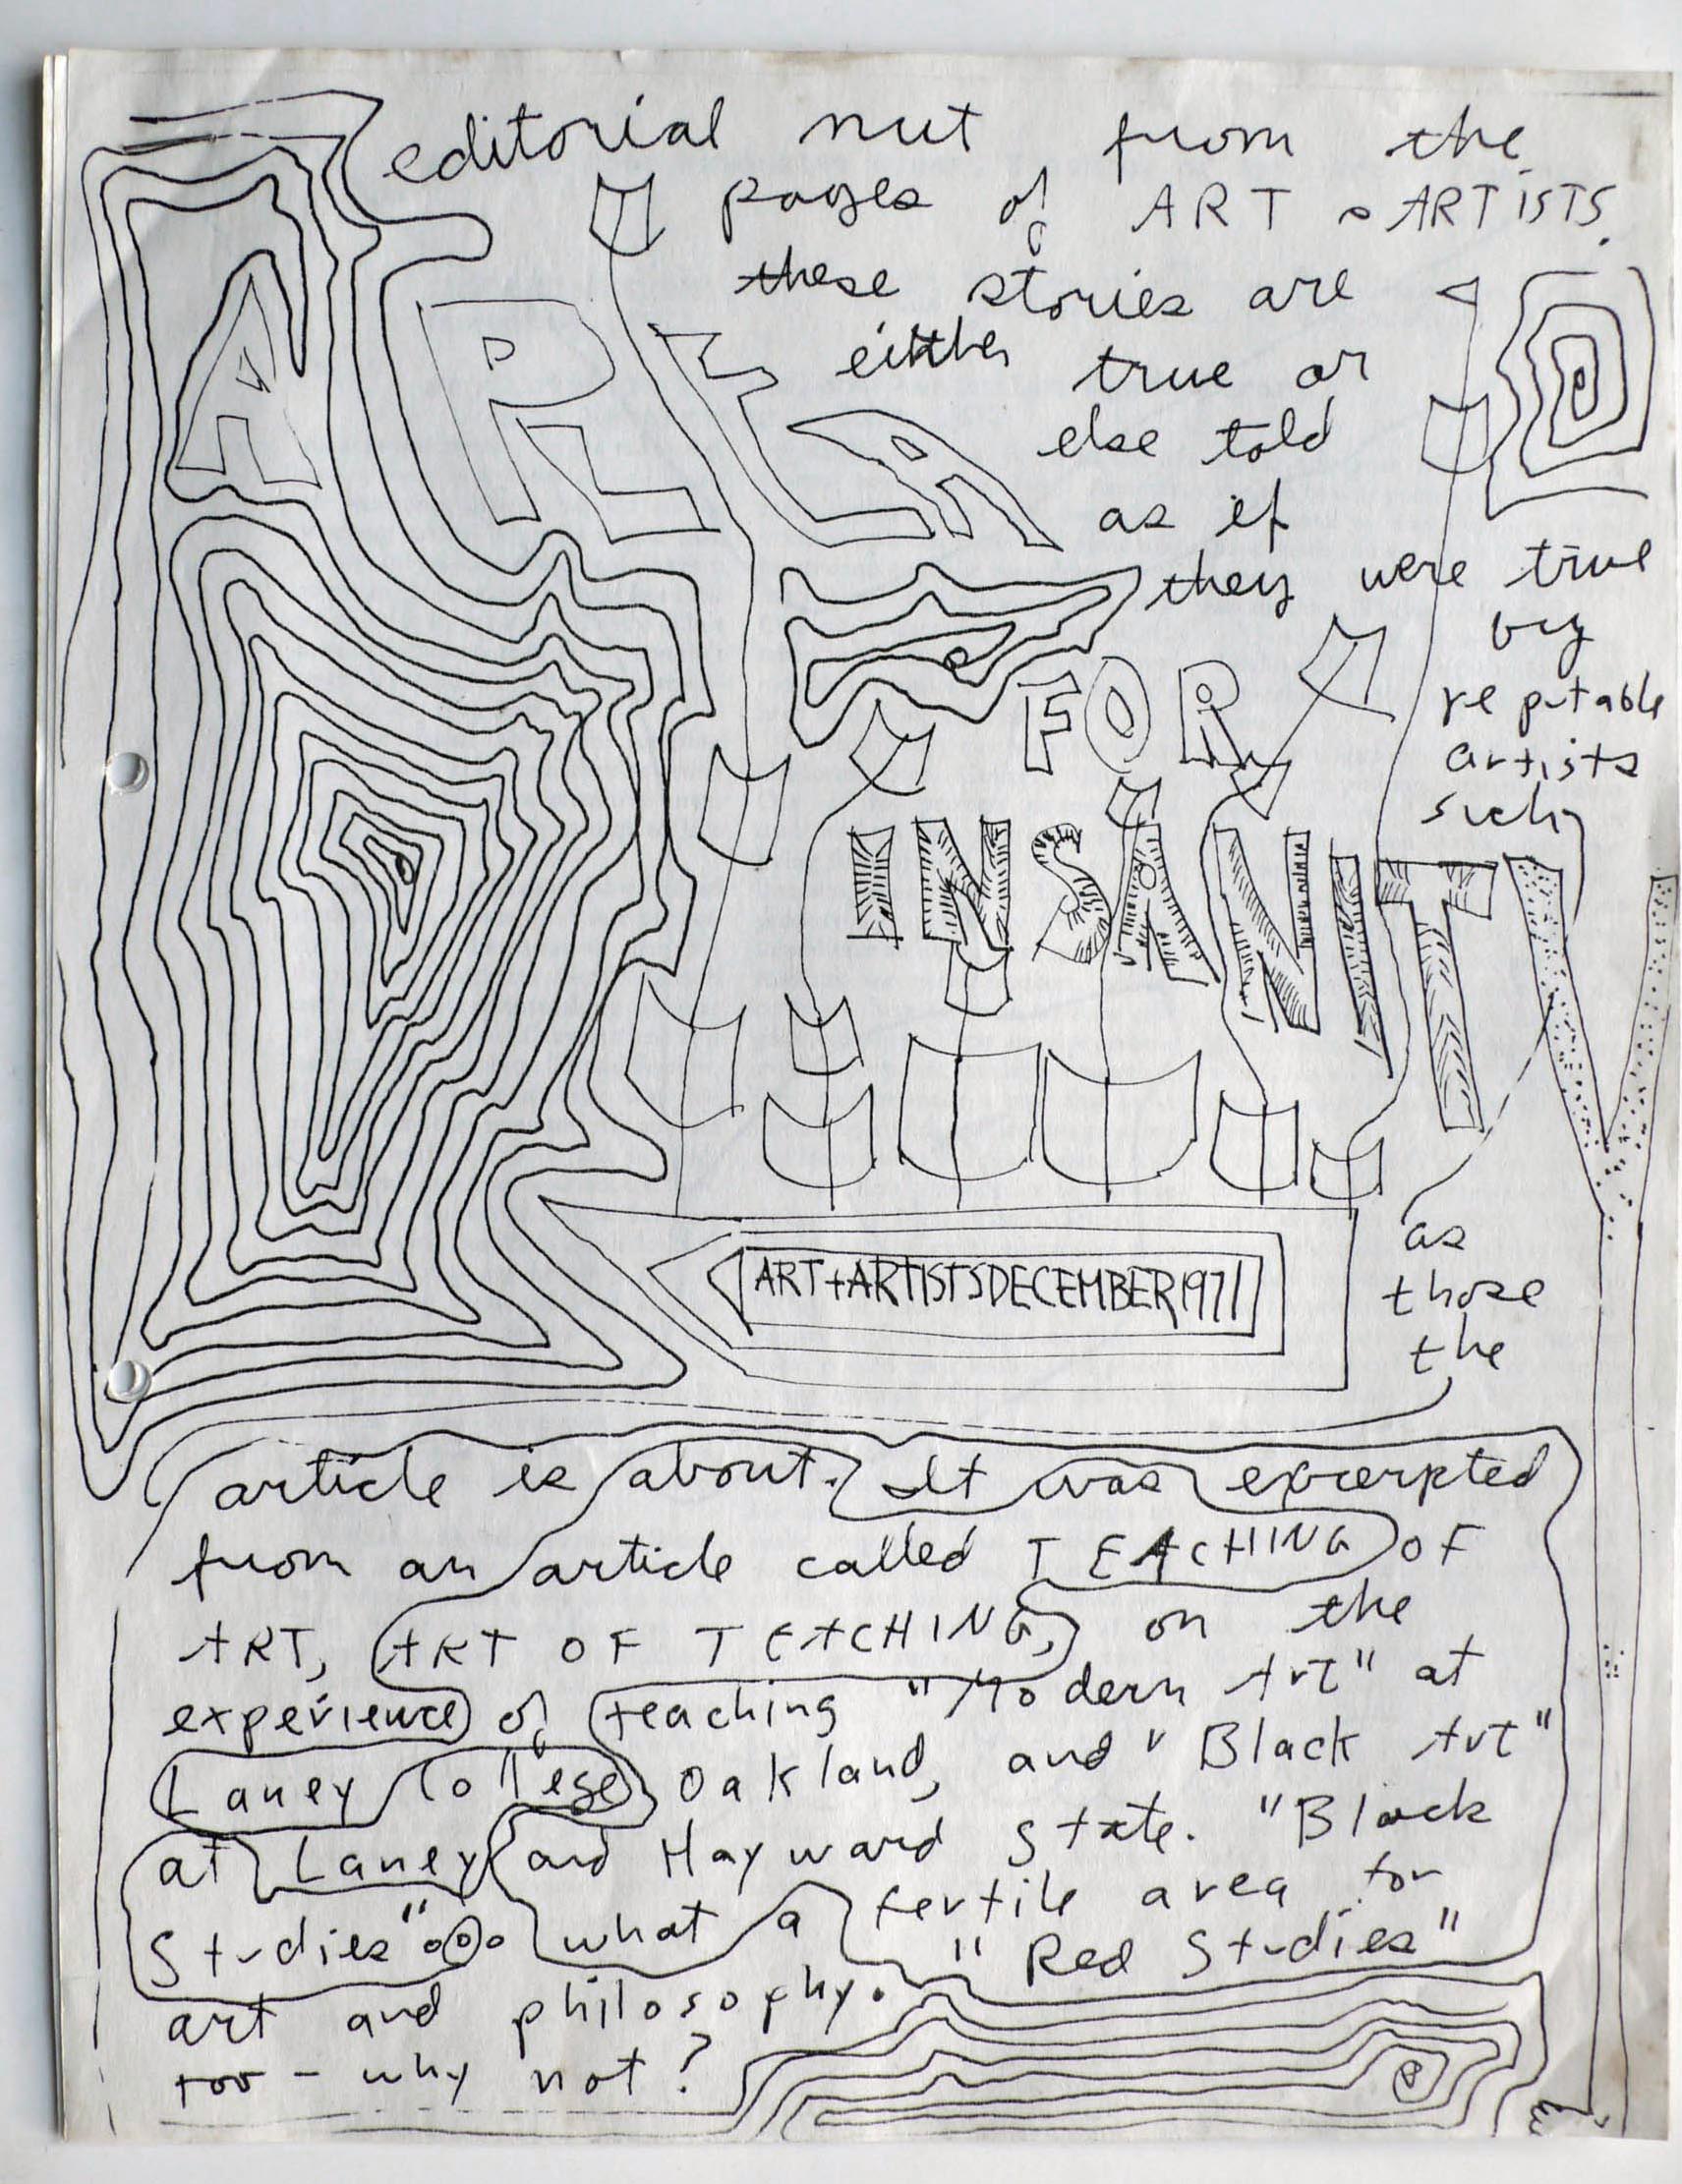 editorial nut from the
pages of ART & ARTISTS.
these stories are
either true or
else told
as if
they were true
by
reputable
artists
such
A PLEA
FOR
INSANITY
ART+ARTISTSDECEMBER1971
as
those
the
article is about. It was excerpted
from an article called TEACHING OF
ART, ART OF TEACHING, on the
experience of teaching "Modern Art" at
Laney College Oakland, and "Black Art"
at Laney and Hayward State. "Black
Studies" ooo what a fertile area for
art and philosophy. "Red Studies"
too - why not?